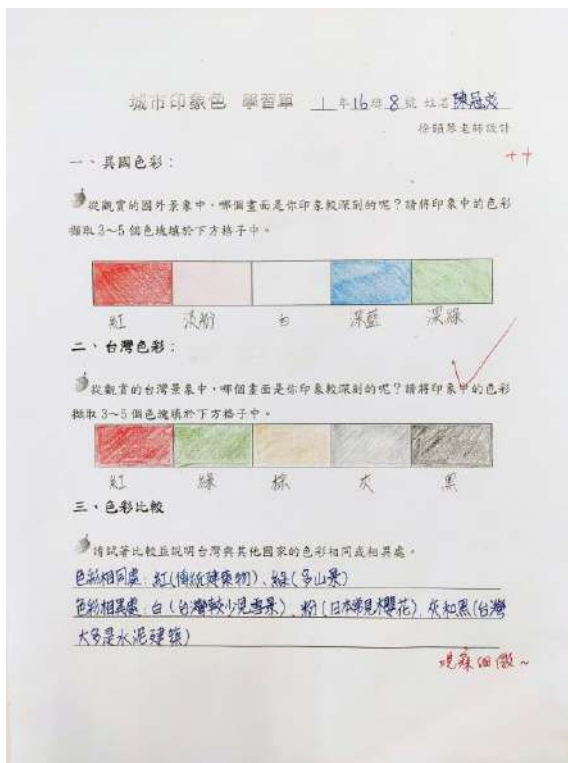 城市印象色 學習單 1 年 16 班 8 號 姓名 陳冠
徐韻琴老師設計
++
一、異國色彩：
從觀賞的國外景象中，哪個畫面是你印象較深刻的呢？請將印象中的色彩
擷取 3～5 個色塊填於下方格子中。
紅 淡粉 白 深藍 深綠
二、台灣色彩：
從觀賞的台灣景象中，哪個畫面是你印象較深刻的呢？請將印象中的色彩
擷取 3～5 個色塊填於下方格子中。
紅 綠 棕 灰 黑
三、色彩比較
請試著比較並說明台灣與其他國家的色彩相同或相異處。
色彩相同處：紅(傳統建築物)、綠(多山景)
色彩相異處：白(台灣較少見雪景)、粉(日本常見櫻花)、灰和黑(台灣
大多是水泥建築)
觀察細微~